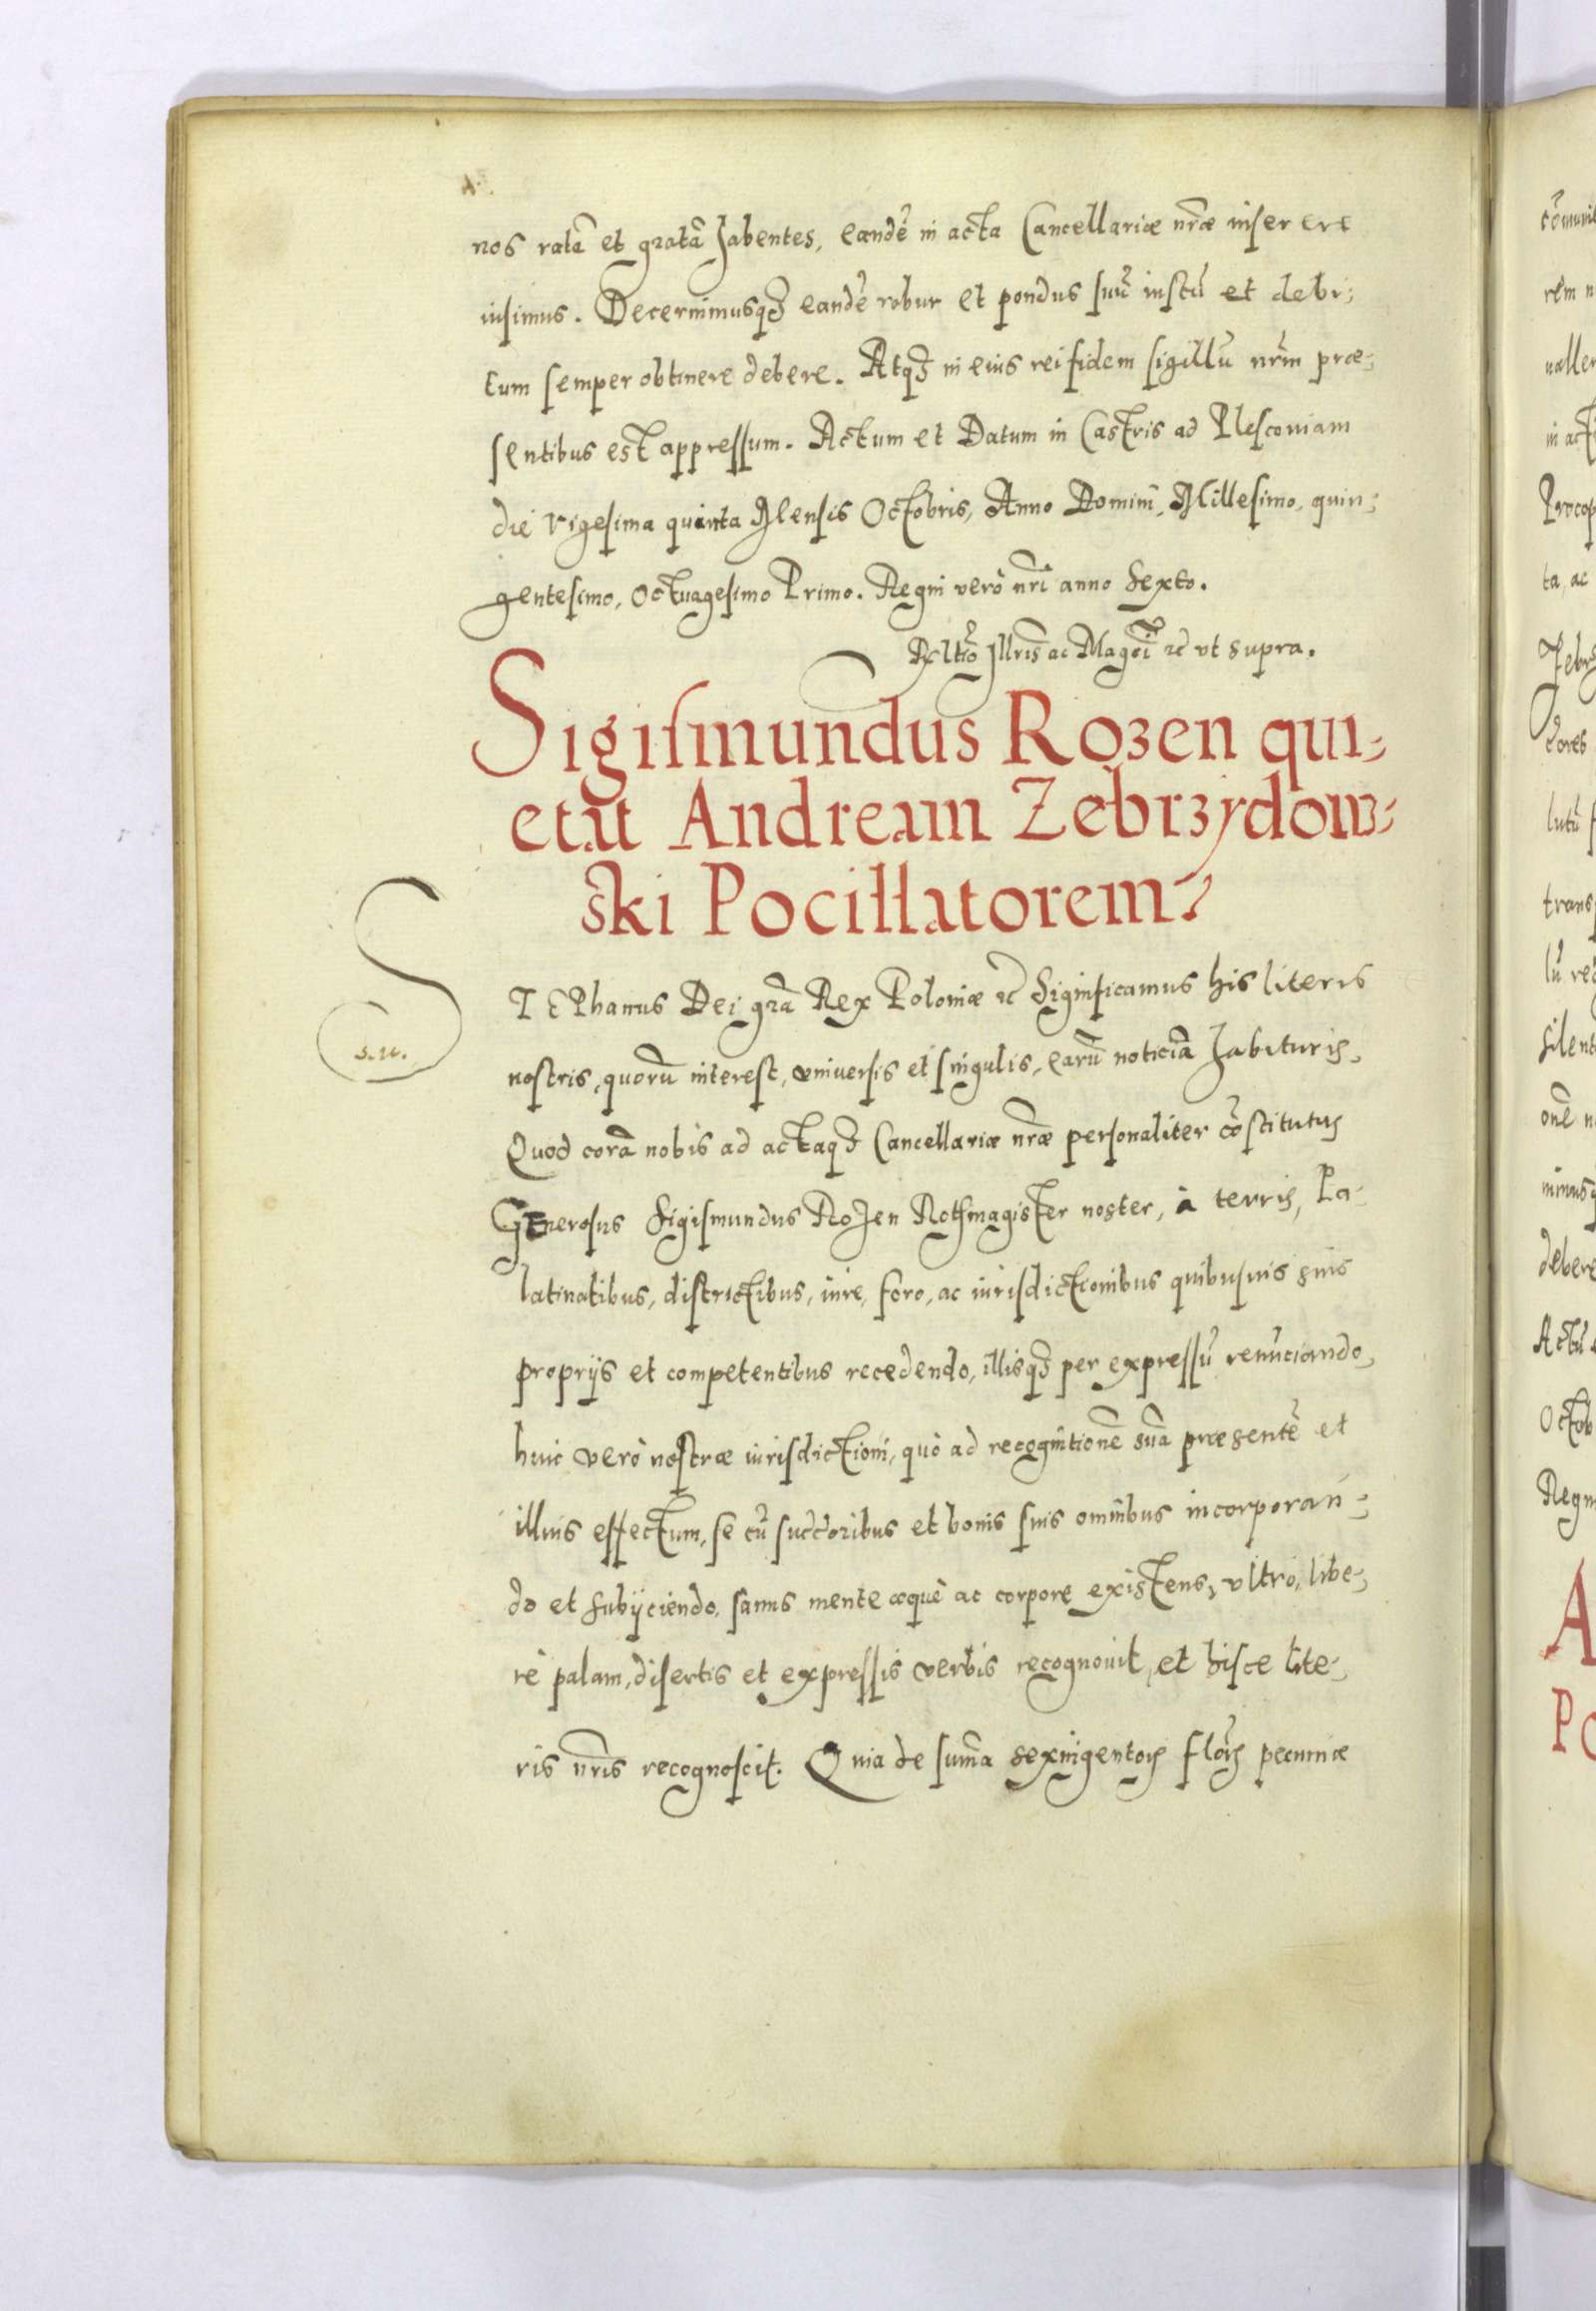 nos ratã et gratã habentes, eandẽ in acta Cancellariæ nr̃æ inserere
iusimus. Decernimusq3 eandẽ robur et pondus suũ iustũ et debi-
tum semper obtinere debere. Atq3 in eius rei fidem sigillũ nr̃m præ-
sentibus est appressum. Actum et Datum in Castris ad Plescoviam
die vigesima quinta Mensis Octobris, Anno Domini, Millesimo, quin-
gentesimo, Octuagesimo Primo. Regni verò nr̃i anno Sexto.
Reltiõ Illris̃ ac Magci ꝛc̃ vt supra.
Sigismundus Rozen qui-
etat Andream Zebrzydow-
ski Pocillatorem
STEPhanus Dei grã Rex Poloniæ ꝛc̃ Significamus his literis
s.n.
nostris, quorũ interest, vniuersis et singulis, earũ noticiã habituris,
Quod corã nobis ad actaq3 Cancellariæ nr̃æ personaliter cõstitutus
Generosus Sigismundus Rozen Rothmagister noster, à terris, Pa-
latinatibus, districtibus, iure, foro, ac iurisdictionibus quibusuis suis
proprijs et competentibus recedendo, illisq3 per expressũ renũciando,
huic verò nostræ iurisdictioni, quò ad recognitionẽ suã præsentẽ et
illius effectum, se cũ succ̃oribus et bonis suis omnibus incorporan-
do et subijciendo, sanus mente æquè ac corpore existens, vltrò, libe-
rè palam, disertis et expressis verbis recognouit, et hisce lite-
ris nr̃is recognoscit. Quia de sum̃a sexingentoꝝ flõꝝ pecuniæ